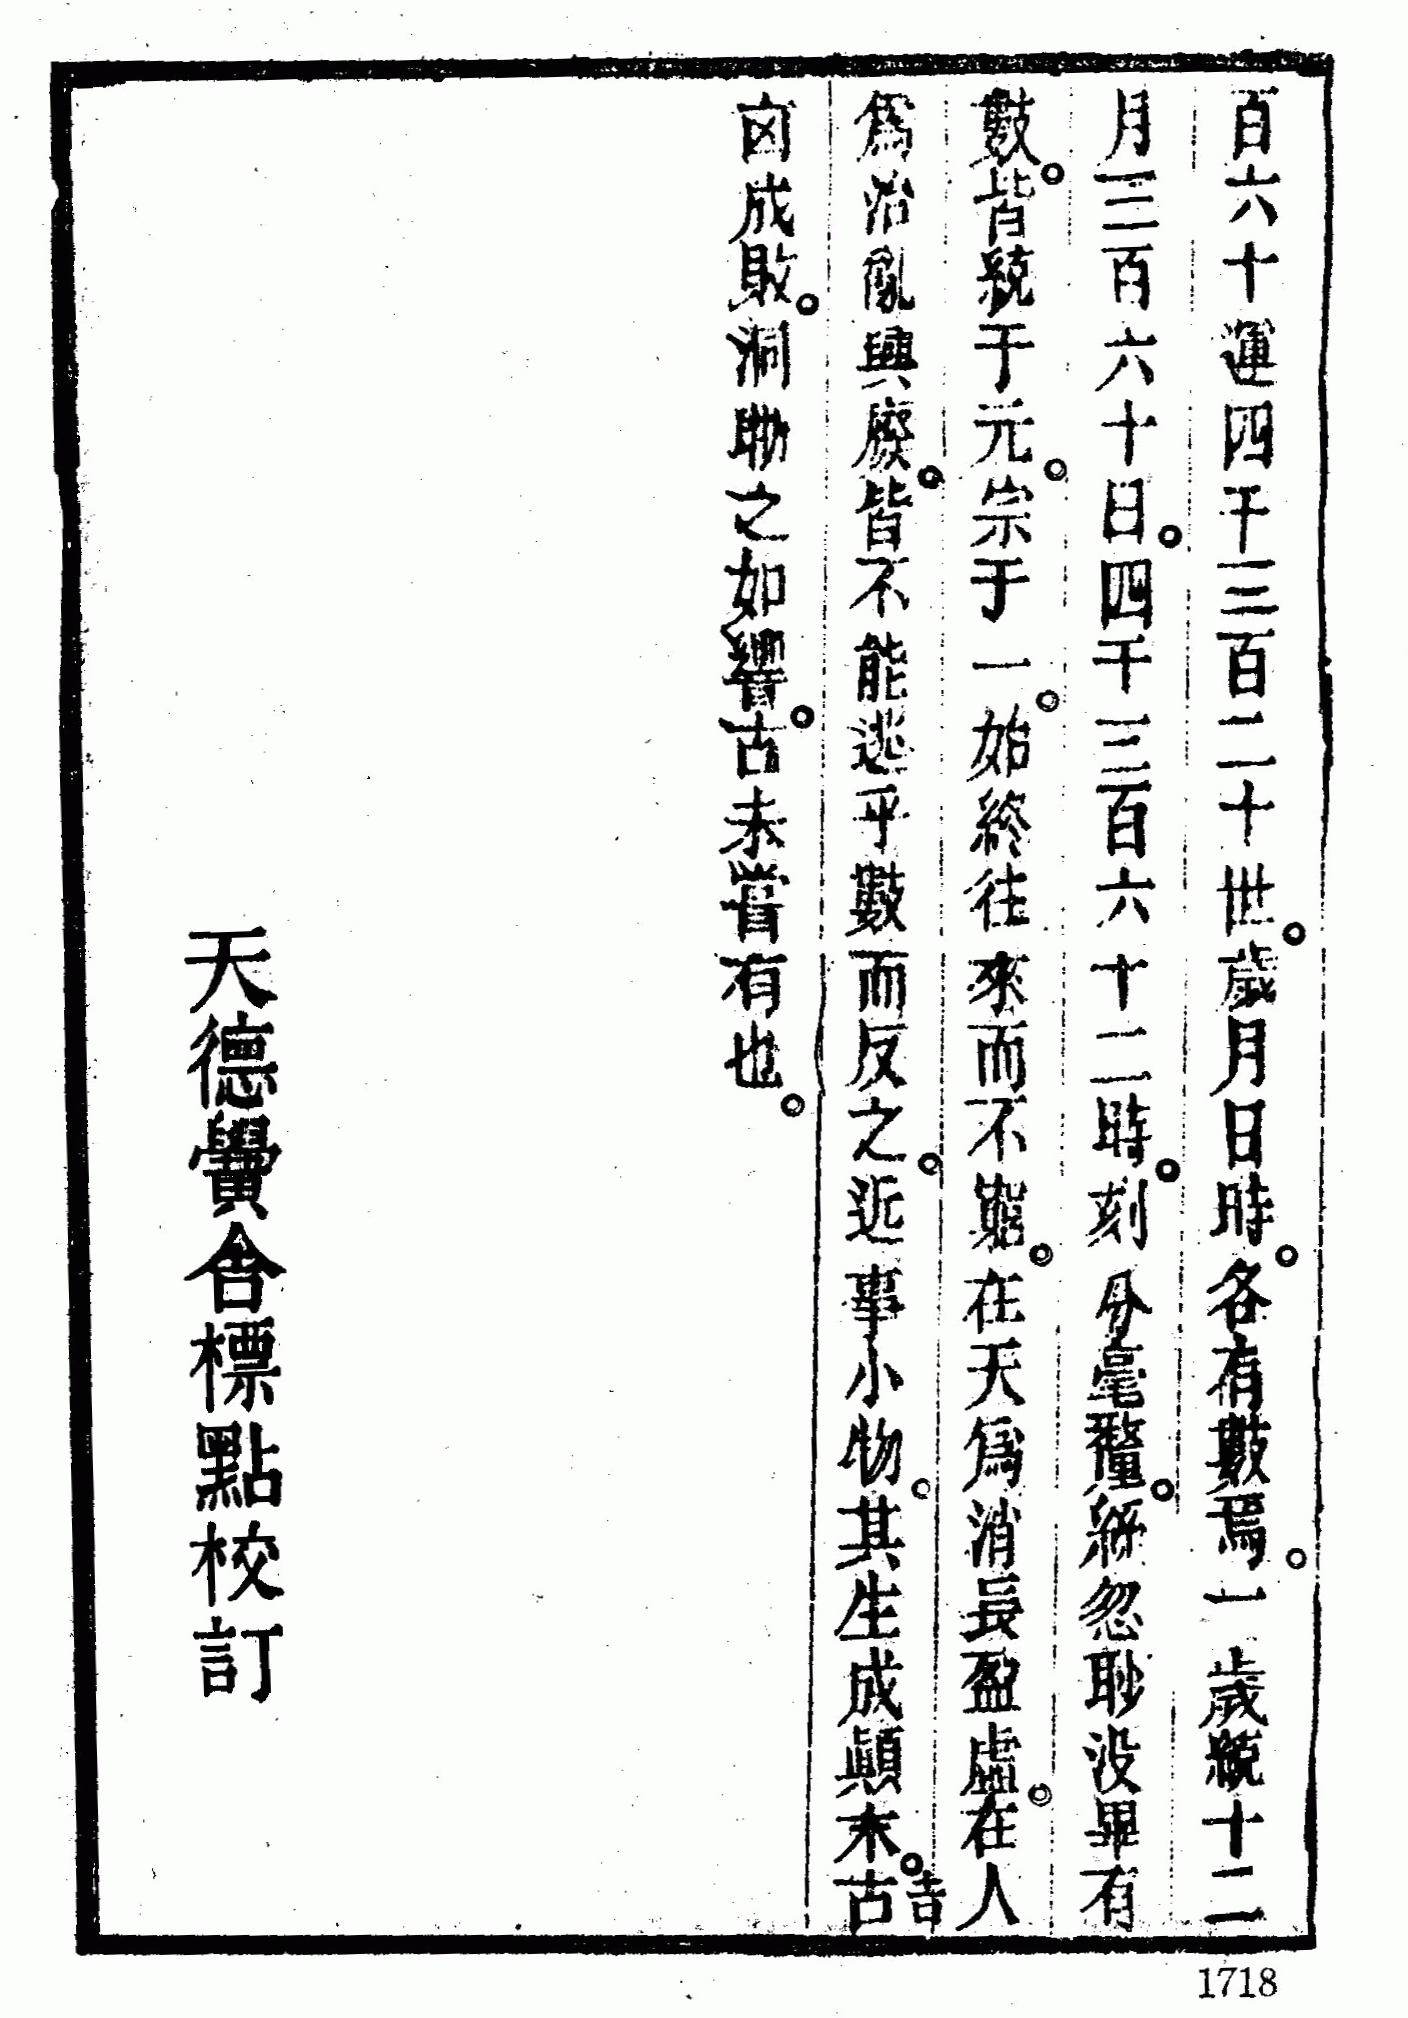 百六十運四千三百二十世。歲月日時。各有數焉。一歲統十二
月三百六十日。四千三百六十二時。刻分毫釐。絲忽眇没畢有
數。皆統于元。宗于一。始終往來而不窮。在天爲消長盈虛。在人
爲治亂興廢。皆不能逃乎數而反之。近事小物。其生成顛末。古
吉
囟成敗。洞眇之如響。古未嘗有也。
天德黌舍標點校訂
1718